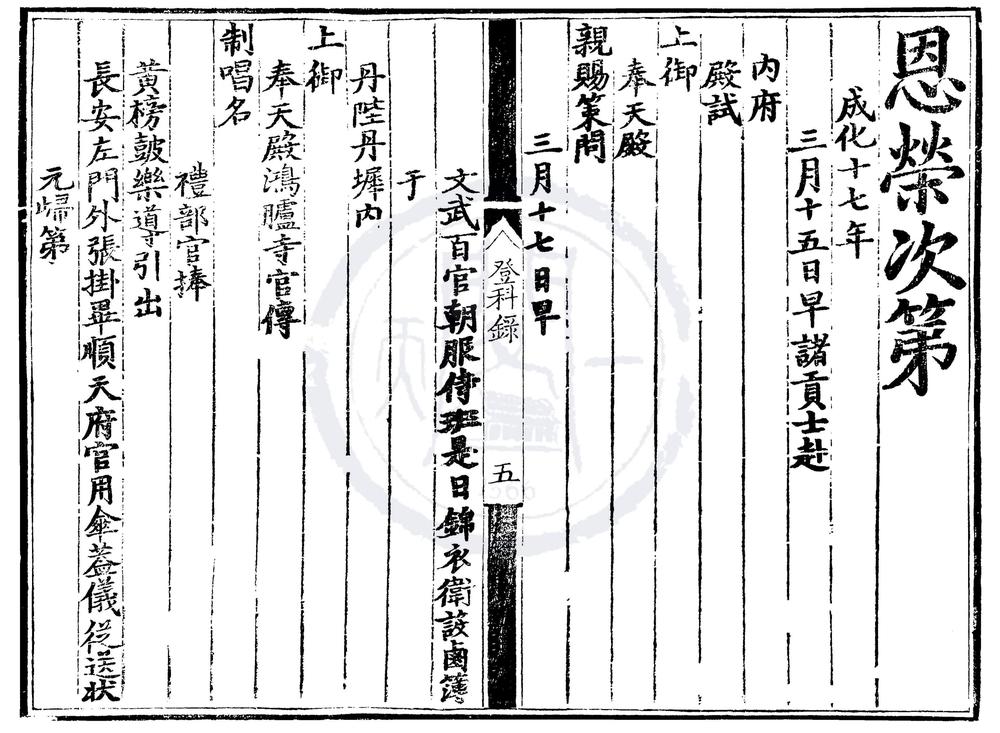 恩榮次第
成化十七年
三月十五日早諸貢士赴
內府
殿試
上御
奉天殿
親賜策問
三月十七日早
登科錄
五
文武百官朝服侍班是日錦衣衛設鹵簿
于
丹陛丹墀內
上御
奉天殿鴻臚寺官傳
制唱名
禮部官捧
黃榜鼓樂導引出
長安左門外張掛畢順天府官用傘蓋儀從送狀
元歸第